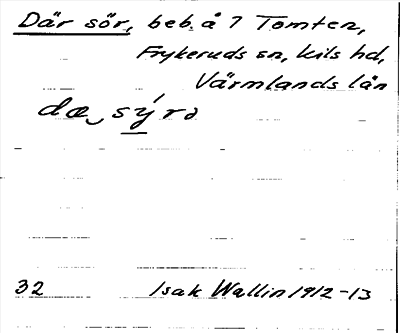 Där sör, beb. å 7 Tomten,
Frykeruds sn, Kils hd,
Värmlands län
dæ‿sýrə
32 Isak Wallin 1912-13